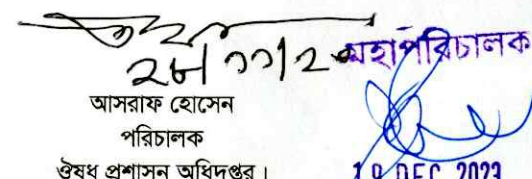 মহাপরিচালক
আসরাফ হোসেন
পরিচালক
ঔষধ প্রশাসন অধিদপ্তর।
19 DEC 2023